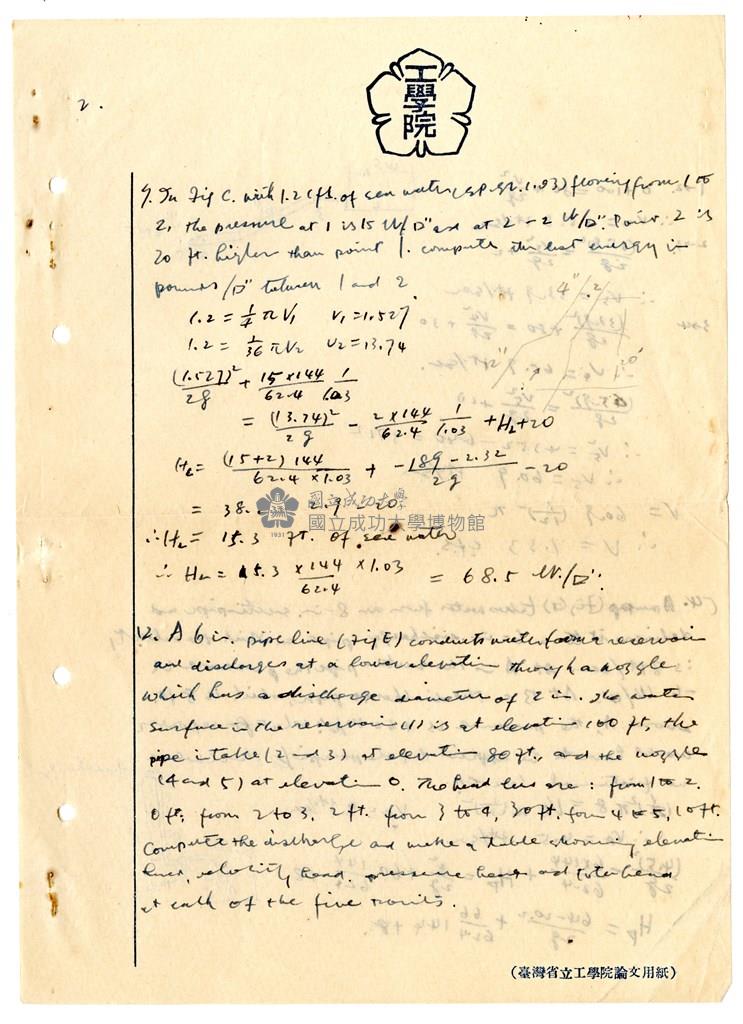 2.
工學院
9. In Fig C. with 1.2 cfs. of sea water (sp.gr. 1.03) flowing from 1 to
2, the pressure at 1 is 15 #/□" and at 2 - 2 #/□". Point 2 is
20 ft. higher than point 1. compute the lost energy in
pounds/□" between 1 and 2.
1.2 = 1/4 π V₁ V₁ = 1.527
1.2 = 1/36 π V₂ V₂ = 13.74
(1.527)²/2g + 15×144/62.4 1/1.03
= (13.74)²/2g - 2×144/62.4 1/1.03 + HL + 20
HL = (15+2) 144/62.4 × 1.03 + -189 - 2.32/2g - 20
= 38. 2.9 - 20
∴ HL = 15.3 ft. of sea water
∴ HL = 15.3 × 144/62.4 × 1.03 = 68.5 #/□".
國立成功大學
國立成功大學博物館
1931
12. A 6 in. pipe line (Fig E) conducts water from a reservoir
and discharges at a lower elevation through a nozzle
which has a discharge diameter of 2 in. The water
surface in the reservoir (1) is at elevation 100 ft, the
pipe intake (2 and 3) at elevation 80 ft., and the nozzle
(4 and 5) at elevation 0. The head loss are: from 1 to 2,
0 ft; from 2 to 3, 2 ft. from 3 to 4, 30 ft. from 4 to 5, 10 ft.
Compute the discharge and make a table showing elevation
head, velocity head, pressure head and total head
at each of the five points.
(臺灣省立工學院論文用紙)